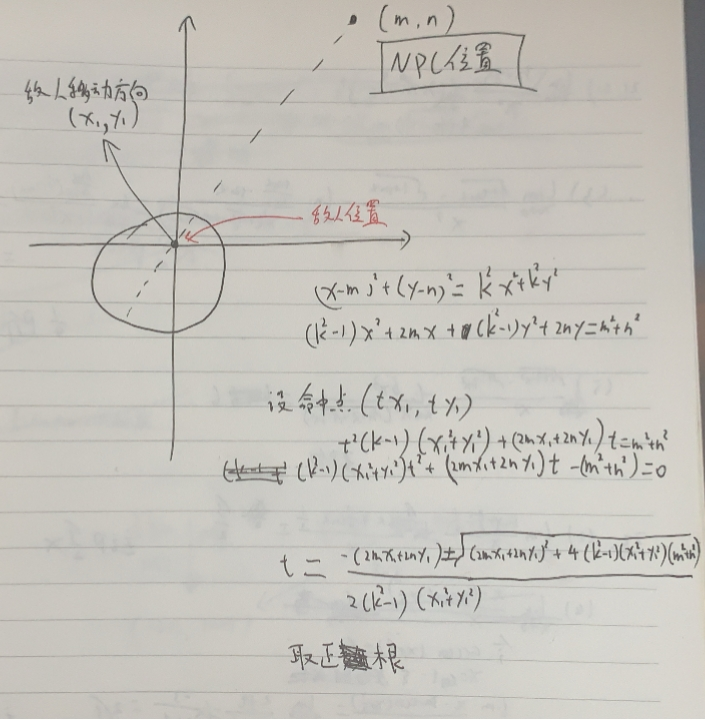 (m,n)
NPC位置
敌人移动方向
(x₁,y₁)
敌人位置
(x-m)²+(y-n)²=k²x²+k²y²
(k²-1)x²+2mx+(k²-1)y²+2ny=m²+n²
设命中点(tx₁,ty₁)
t²(k-1)(x₁²+y₁²)+(2mx₁+2ny₁)t=m²+n²
(k²-1)(x₁²+y₁²)t²+(2mx₁+2ny₁)t-(m²+n²)=0
t=\frac{-(2mx₁+2ny₁)±\sqrt{(2mx₁+2ny₁)²+4(k²-1)(x₁²+y₁²)(m²+n²)}}{2(k²-1)(x₁²+y₁²)}
取正根